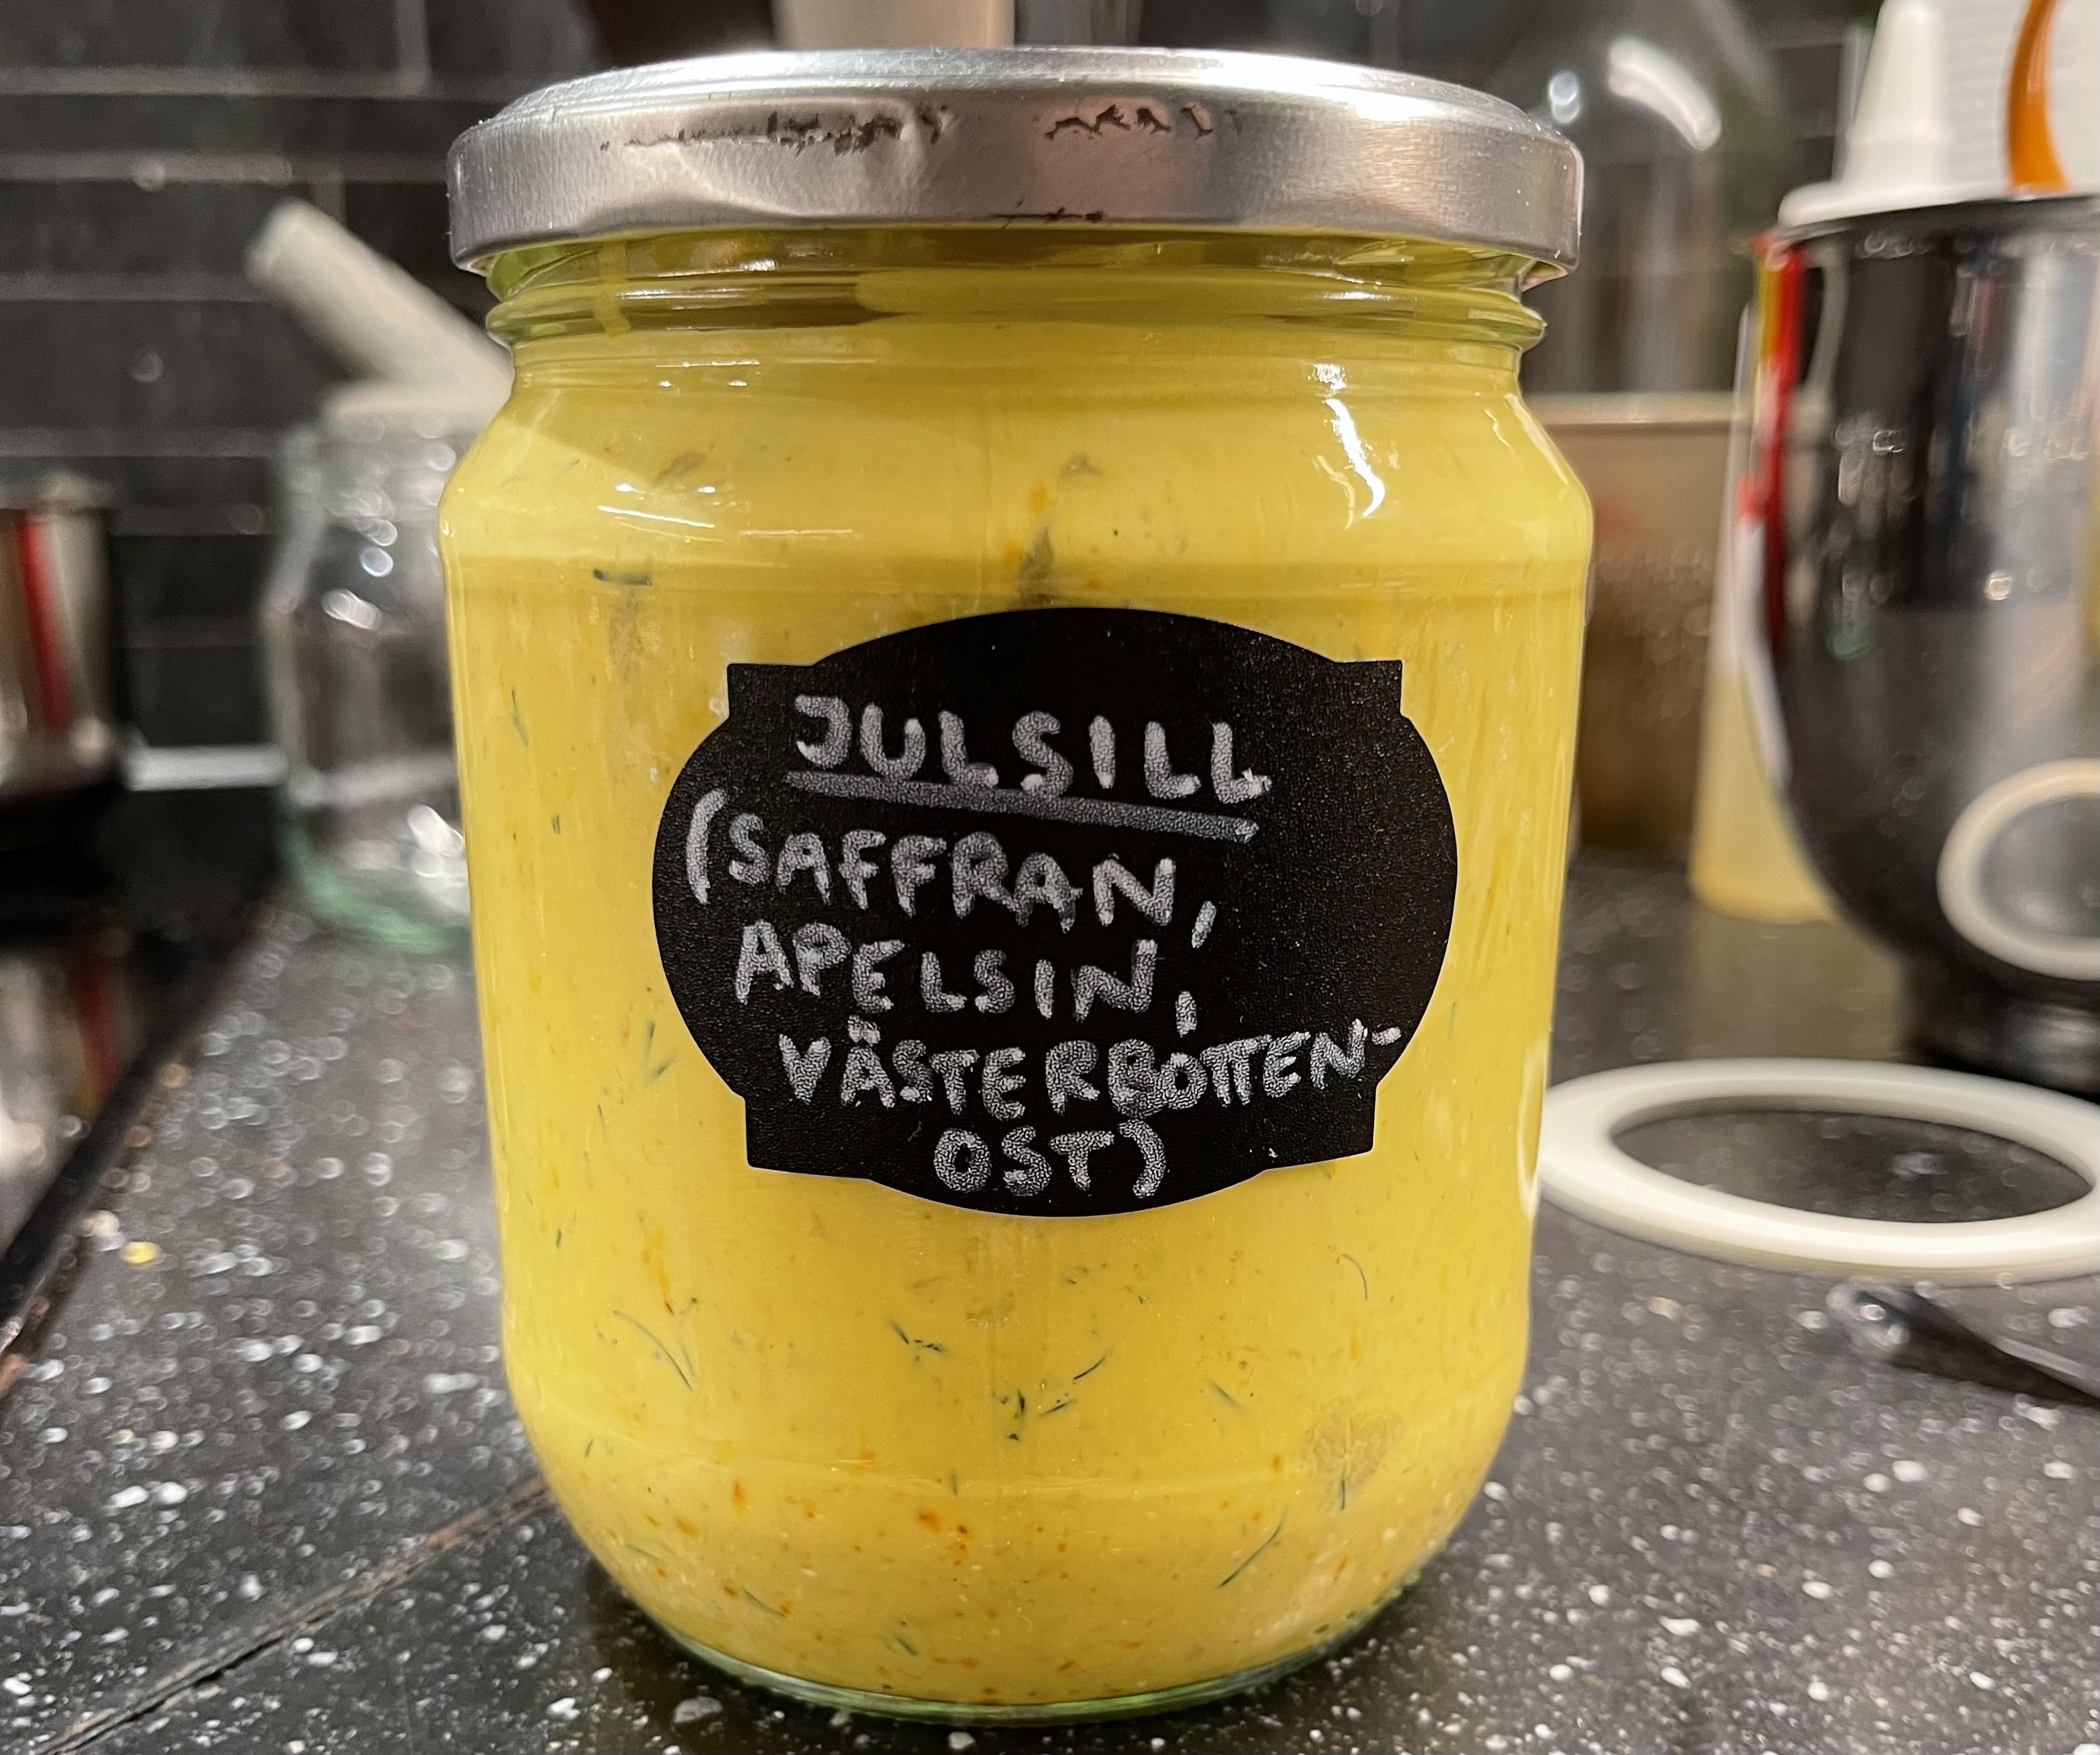 JULSILL
(SAFFRAN,
APELSIN,
VÄSTERBOTTEN-
OST)